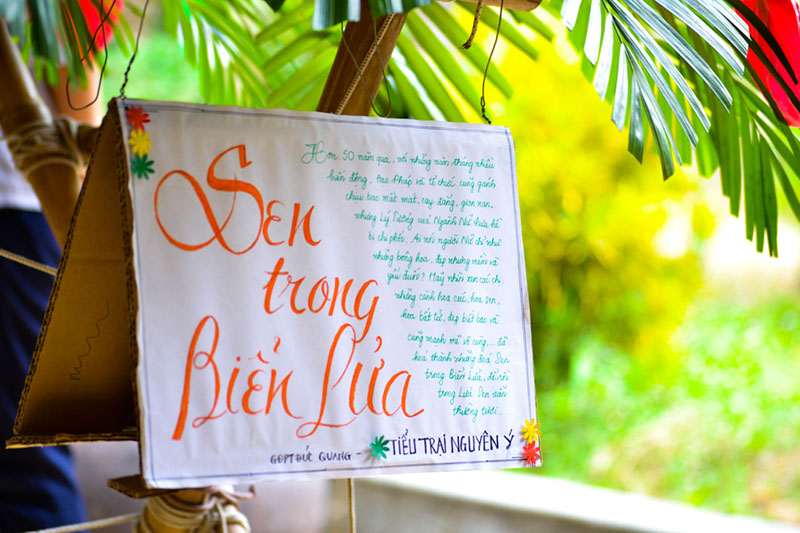 Sen
trong
Biển Lửa
Hơn 50 năm qua, với những năm tháng nhiều
biến động, Đạo Pháp và tổ chức cũng gánh
chịu bao mất mát, cay đắng, gian nan,
nhưng Lý Tưởng của Ngành Nữ chưa hề
bị chi phối... Ai nói người Nữ chỉ như
những bông hoa, đẹp nhưng mềm và
yếu đuối? Hãy nhìn xem các chị
những cánh hoa cúc, hoa sen,
hoa bất tử, đẹp biết bao và
cũng mạnh mẽ vô cùng,... để
hoá thành những đoá Sen
trong Biển Lửa, để rồi
trong Lửa Sen vẫn
thường tươi.
GĐPT ĐỨC QUANG - TIỂU TRẠI NGUYÊN Ý